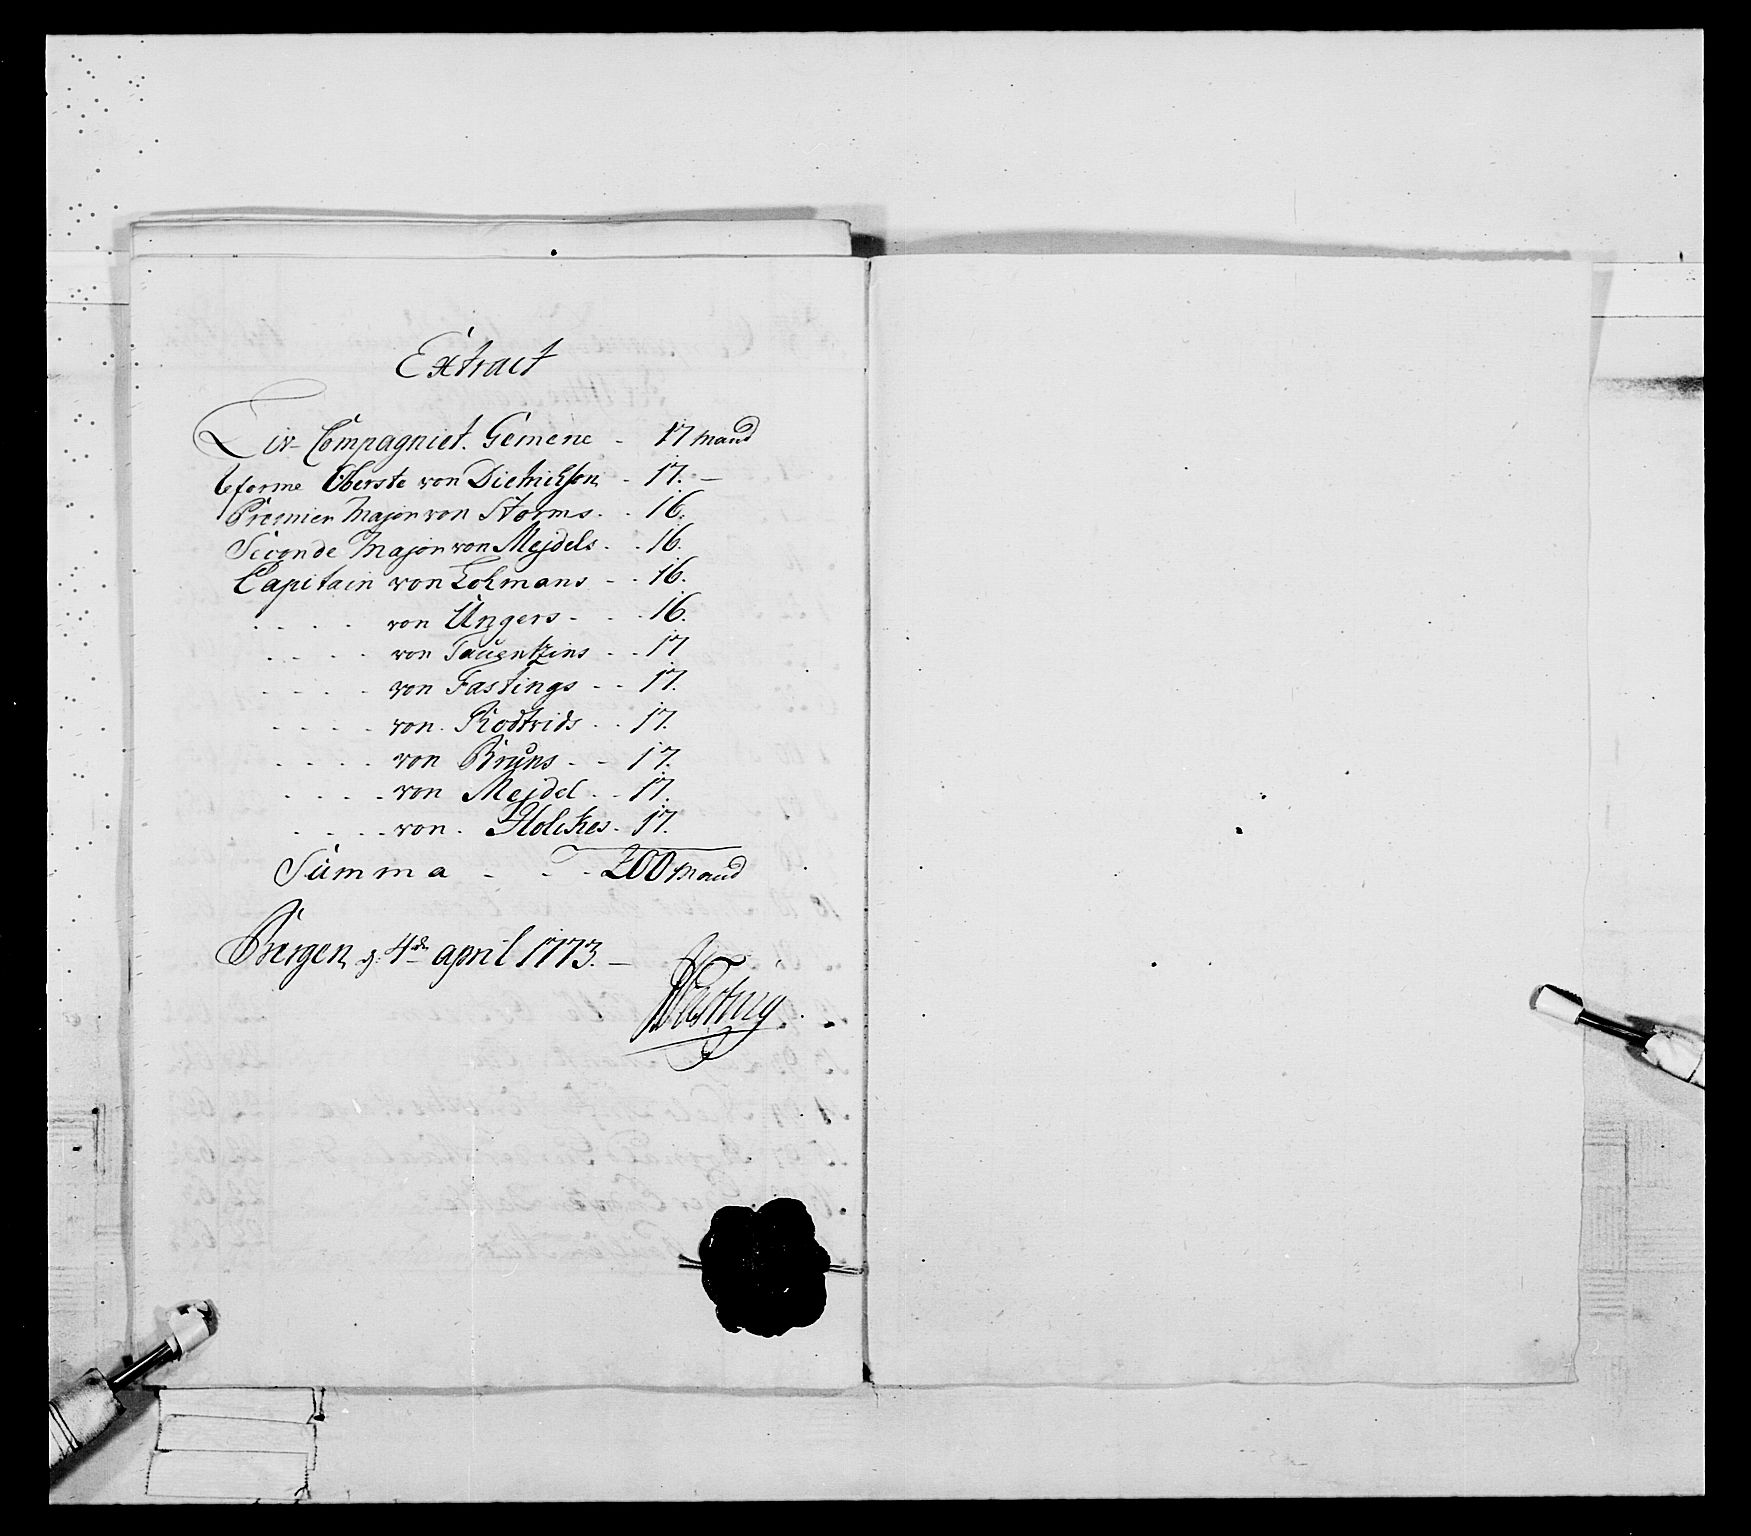 Extract
Liv-Compagniet. Gemene - 17 mand
Oberste von Dietrichson - 17. -
Premier Major von Storms. . 16.
Seconde Major von Mejdels. . 16.
Capitain von Lohmans - . 16.
. . . . von Ungers - . . 16.
. . . . von Tauentzins . . 17
. . . . von Fastings - - 17.
. . . . von. Rodtrids . . 17.
. . . . von Bruns . - 17.
. . . . von Mejdel . . 17.
. . . . von. Holckes. 17.
Summa - - - 200 mand
Bergen, d: 4de april 1773. -